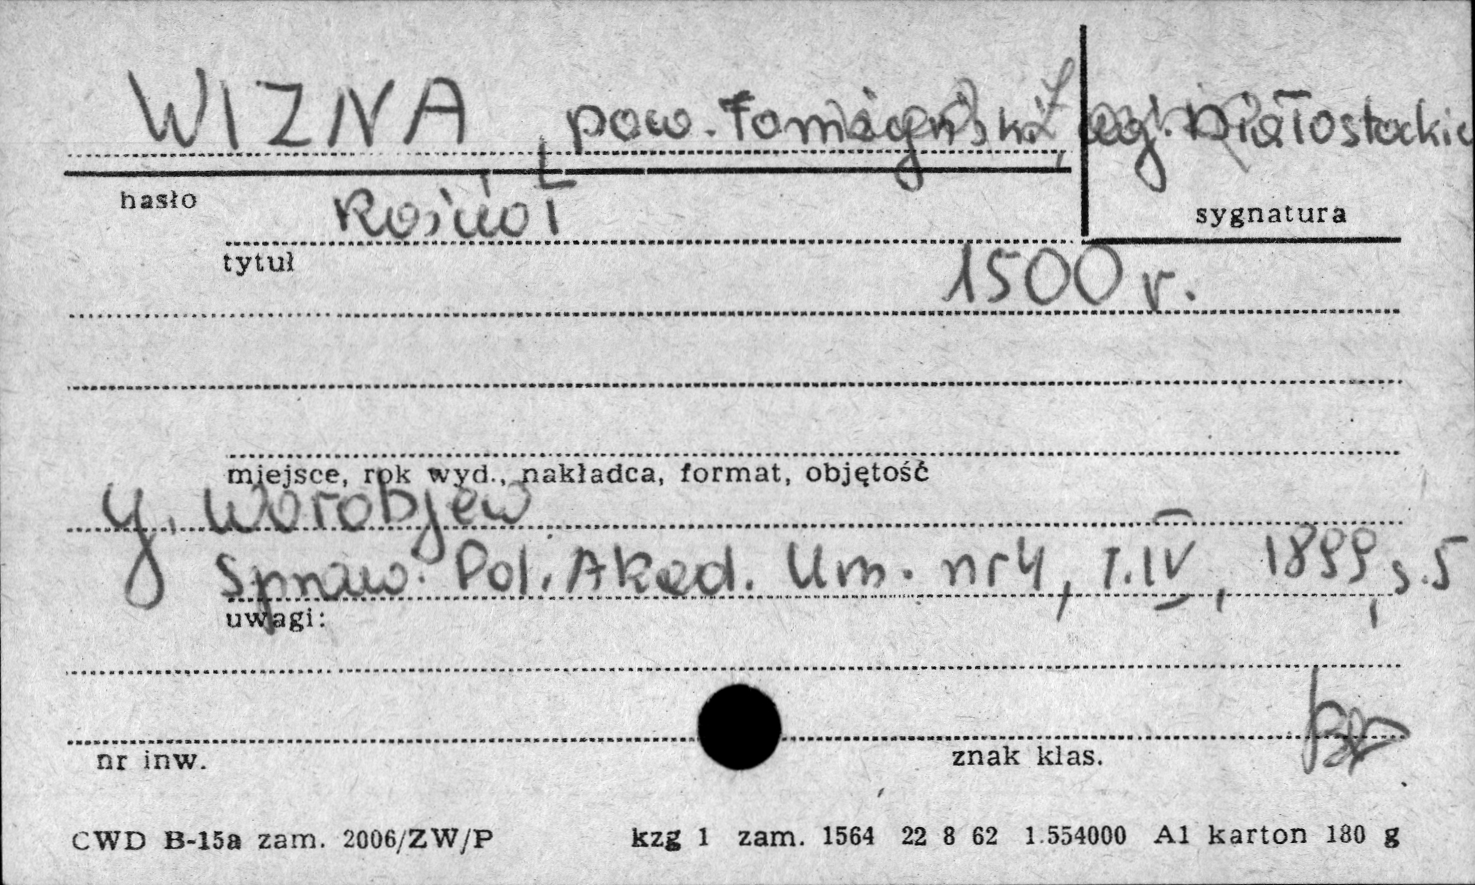 WIZNA, pow. Łomżyński, woj. Białostockie
hasło
Kościół
sygnatura
tytuł
1500 r.
miejsce, rok wyd., nakładca, format, objętość
y. Worobjew
Spraw. Pol. Akad. Um. nr 4, T. IV, 1899, s. 5
uwagi:
nr inw.
znak klas.
CWD B-15a zam. 2006/ZW/P
kzg 1 zam. 1564 22 8 62 1.554000 A1 karton 180 g